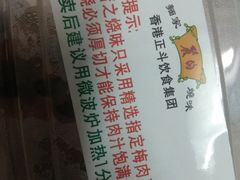 麵家
燒味
香港正斗饮食集团
提示:
之烧味只采用精选指定梅肉
必须厚切才能保持肉汁饱满
卖后建议用微波炉加热1分